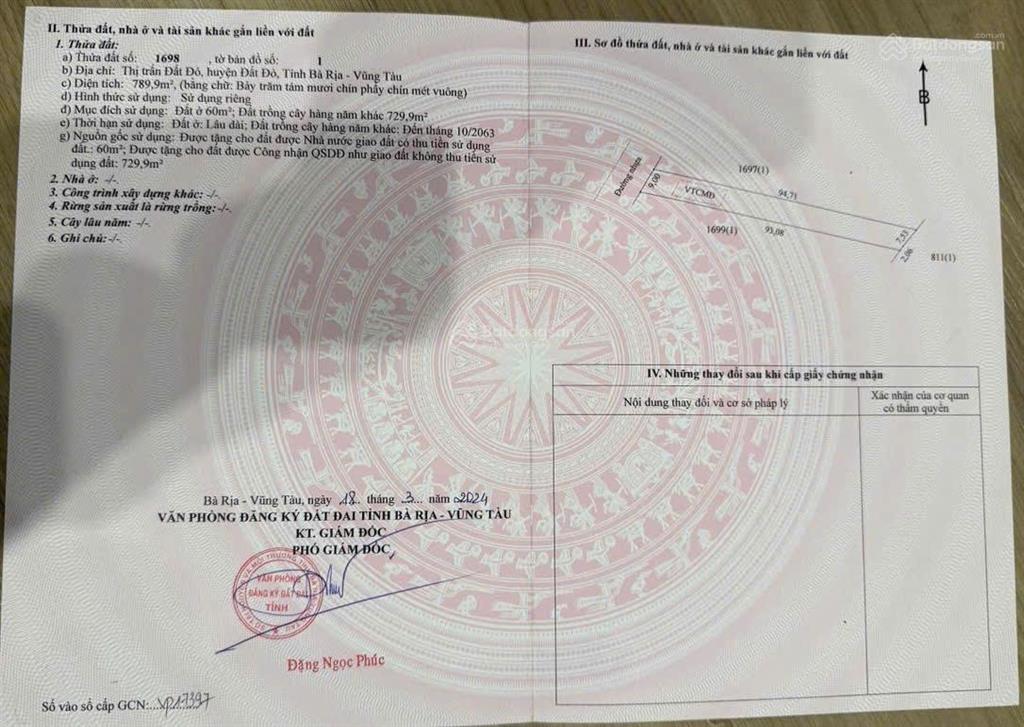 II. Thửa đất, nhà ở và tài sản khác gắn liền với đất
1. Thửa đất:
a) Thửa đất số: 1698 , tờ bản đồ số: 1
b) Địa chỉ: Thị trấn Đất Đỏ, huyện Đất Đỏ, Tỉnh Bà Rịa - Vũng Tàu
c) Diện tích: 789,9m², (bằng chữ: Bảy trăm tám mươi chín phẩy chín mét vuông)
d) Hình thức sử dụng: Sử dụng riêng
đ) Mục đích sử dụng: Đất ở 60m²; Đất trồng cây hàng năm khác 729,9m²
e) Thời hạn sử dụng: Đất ở: Lâu dài; Đất trồng cây hàng năm khác: Đến tháng 10/2063
g) Nguồn gốc sử dụng: Được tặng cho đất được Nhà nước giao đất có thu tiền sử dụng
đất.: 60m²; Được tặng cho đất được Công nhận QSDĐ như giao đất không thu tiền sử
dụng đất: 729,9m²
2. Nhà ở: -/-.
3. Công trình xây dựng khác: -/-
4. Rừng sản xuất là rừng trồng:-/-.
5. Cây lâu năm: -/-
6. Ghi chú:-/-.
Bà Rịa - Vũng Tàu, ngày 18 tháng 3 năm 2024
VĂN PHÒNG ĐĂNG KÝ ĐẤT ĐAI TỈNH BÀ RỊA - VŨNG TÀU
KT. GIÁM ĐỐC
PHÓ GIÁM ĐỐC
VĂN PHÒNG
ĐĂNG KÝ ĐẤT ĐAI
TỈNH
Đặng Ngọc Phúc
Số vào sổ cấp GCN:...VP17397
III. Sơ đồ thửa đất, nhà ở và tài sản khác gắn liền với đất
B
Đường nhựa
9,00
VTCMĐ
1697(1)
94,71
1699(1)
93,08
7,53
2,06
811(1)
IV. Những thay đổi sau khi cấp giấy chứng nhận
Nội dung thay đổi và cơ sở pháp lý
Xác nhận của cơ quan
có thẩm quyền
batdongsan
.com.vn
Batdongsan